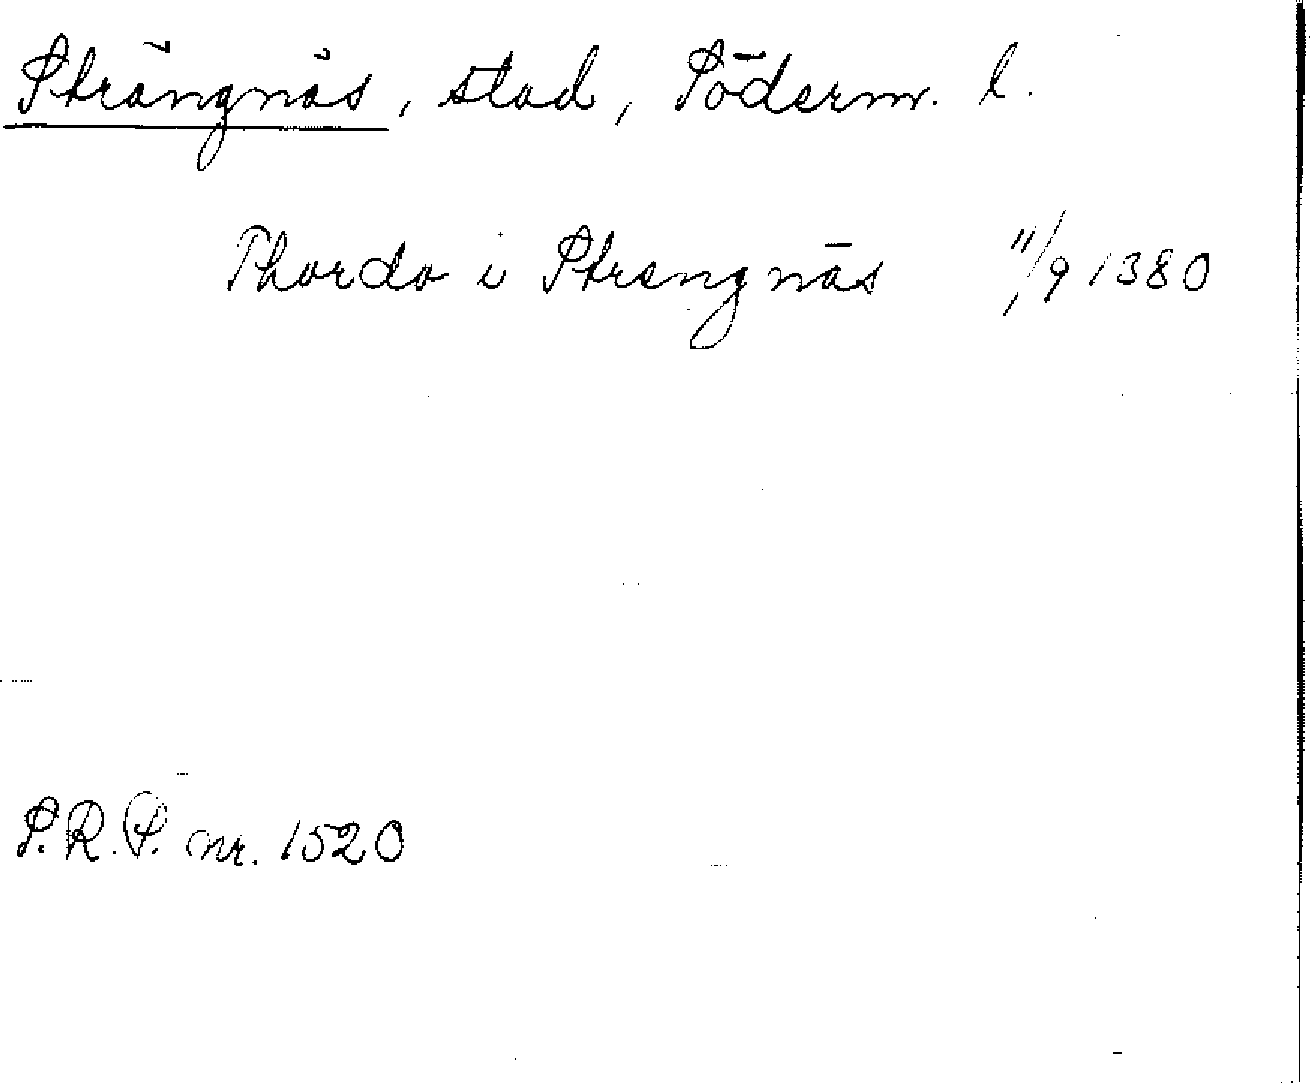 Strängnäs, stad, Söderm. l.
Thordo i Strengnäs 11/9 1380
S.R.P. nr. 1520